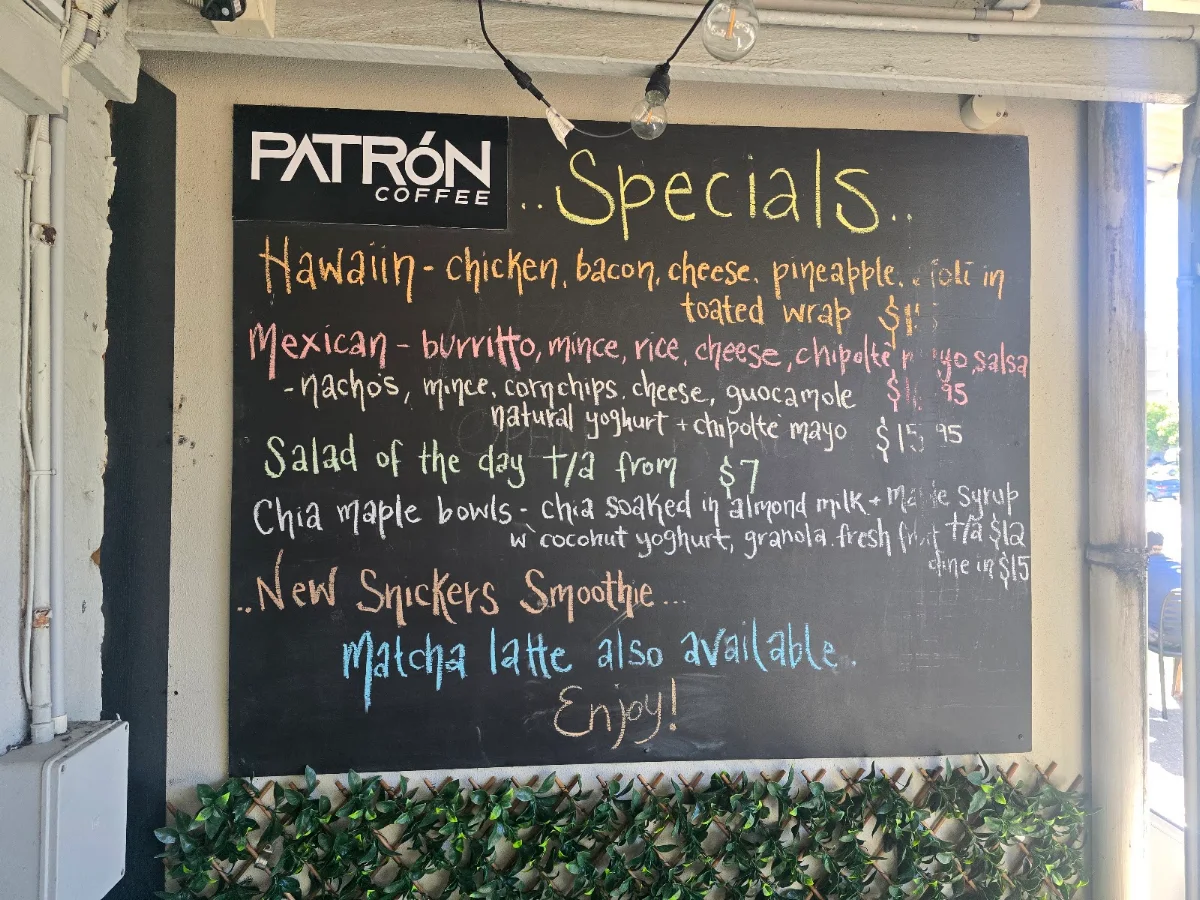 PATRÓN
COFFEE
..Specials..
Hawaiin - chicken, bacon, cheese. pineapple. in
toated wrap
Mexican - burritto, mince, rice, cheese, chipolte salsa
- nachos, mince, cornchips. cheese, guocamole
natural yoghurt + chipolte mayo $15 95
Salad of the day t/a from $7
Chia maple bowls - chia soaked in almond milk + syrup
w` coconut yoghurt, granola. fresh t/a $12
dine in $15
..New Snickers Smoothie...
Matcha latte also available..
Enjoy!